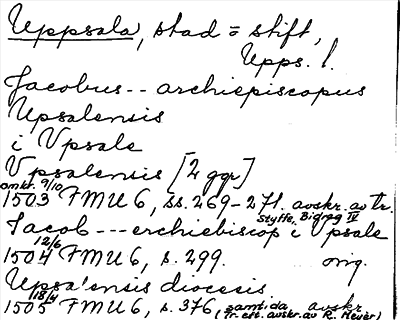 Uppsala, stad o stift,
Upps. l.
Jacobus -- archiepiscopus
Upsalensis
i Vpsale
Vpsalensis [2 ggr]
omkr. 9/10
1503 FMU 6, ss. 269-271. avskr. av tr.
Styffe, Bidrag IV
Jacob --- erchiebiscop i Vpsale
12/6
1504 FMU 6, s. 299. orig.
Upsa'ensis diocesis
18/4
1505 FMU 6, s. 376, (samtida avskr.
Tr. eft. avskr. av R. Meyer)